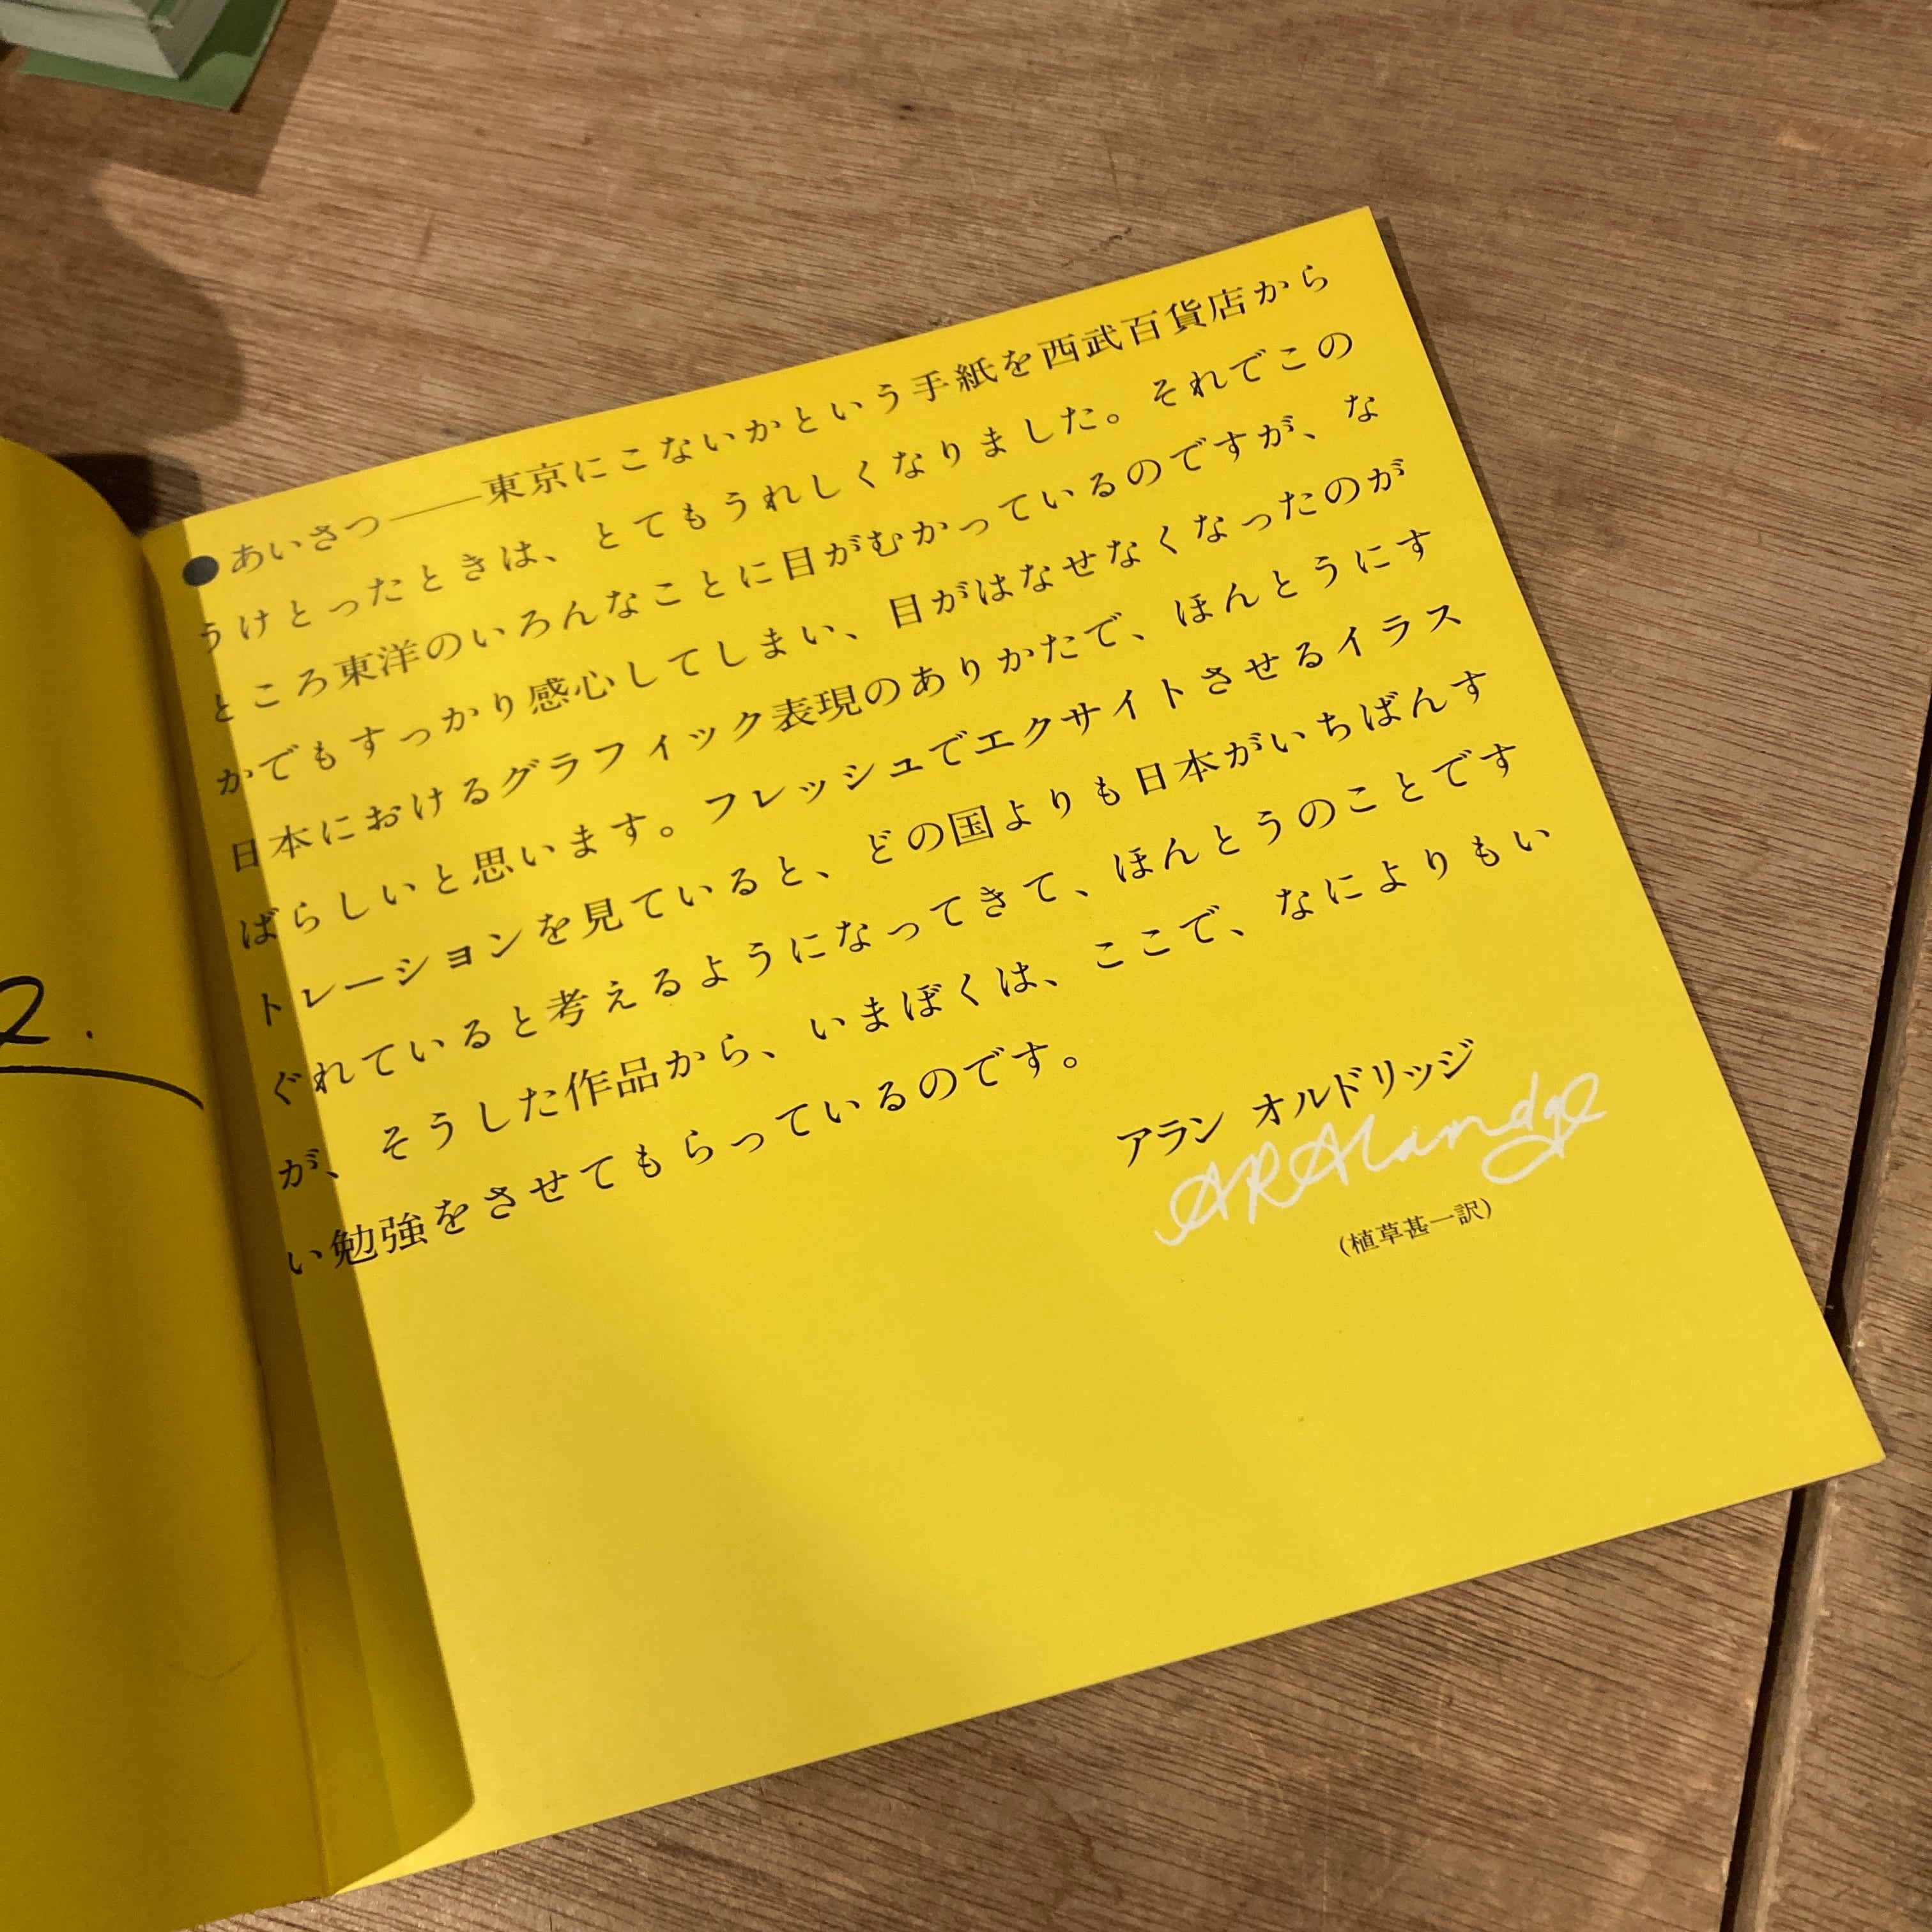 ●あいさつ――東京にこないかという手紙を西武百貨店から
うけとったときは、とてもうれしくなりました。それでこの
ところ東洋のいろんなことに目がむかっているのですが、な
かでもすっかり感心してしまい、目がはなせなくなったのが
日本におけるグラフィック表現のありかたで、ほんとうにす
ばらしいと思います。フレッシュでエクサイトさせるイラス
トレーションを見ていると、どの国よりも日本がいちばんす
ぐれていると考えるようになってきて、ほんとうのことです
が、そうした作品から、いまぼくは、ここで、なによりもい
い勉強をさせてもらっているのです。
アラン オルドリッジ
(植草甚一訳)